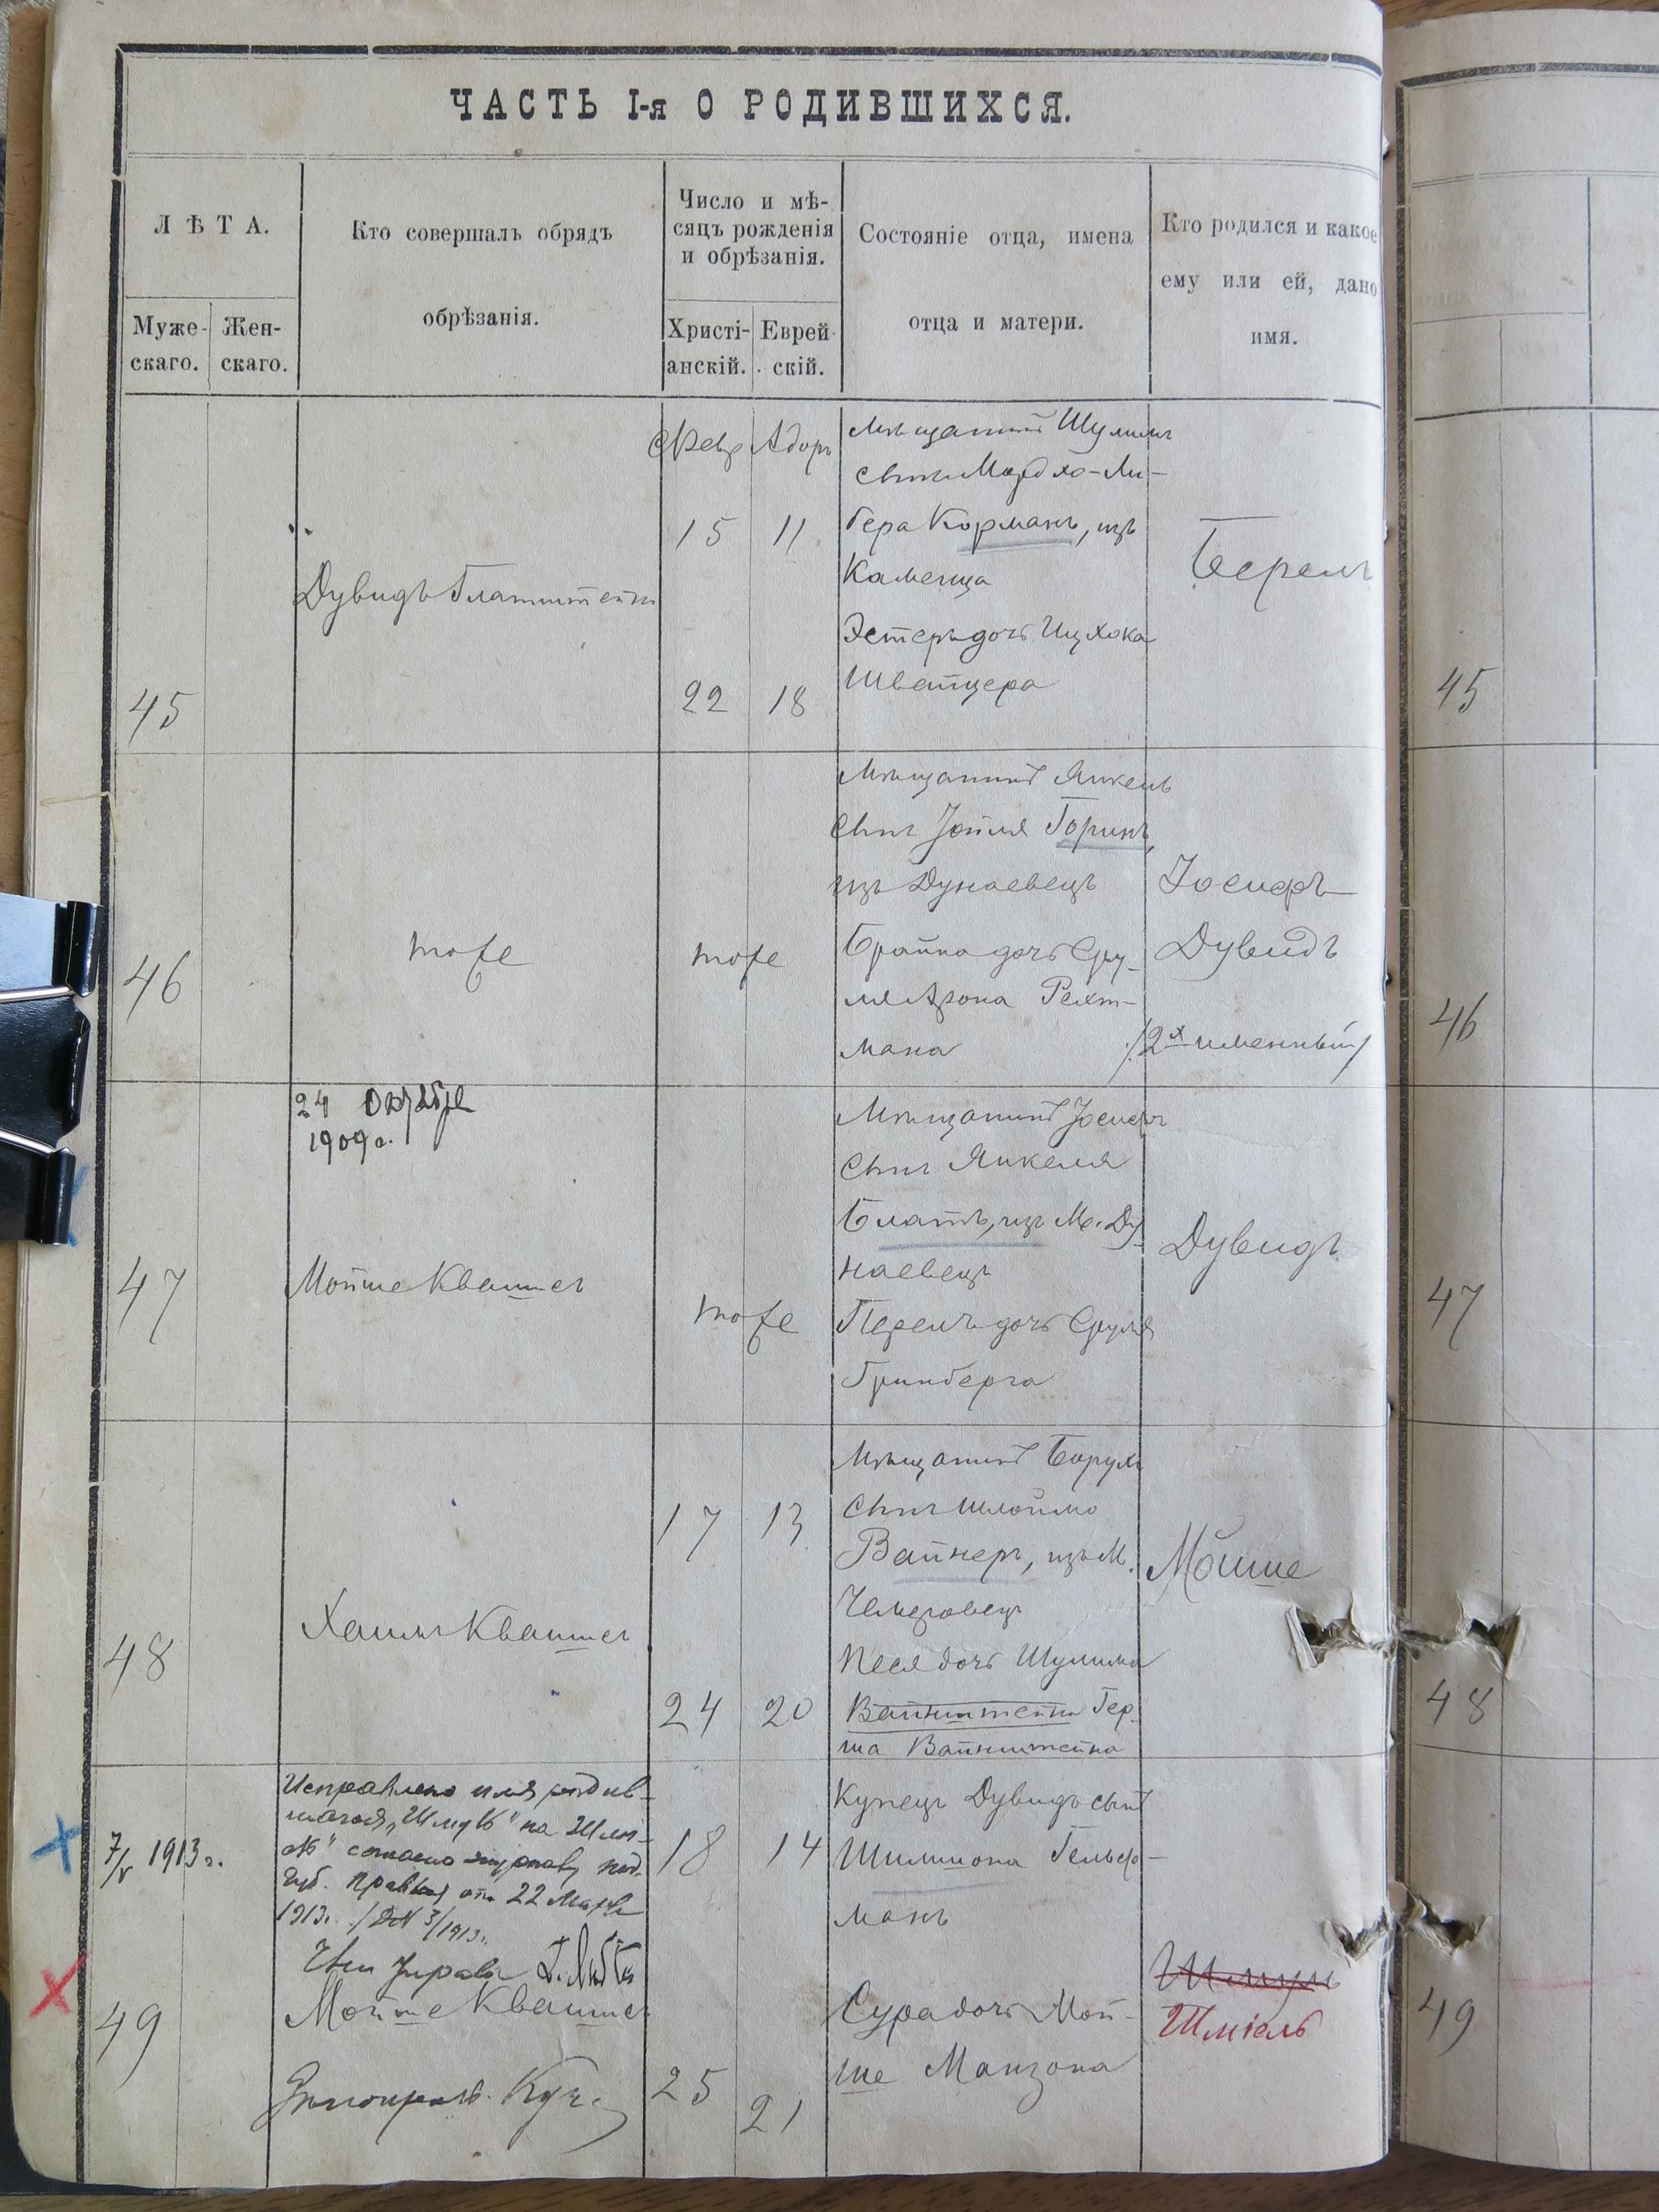 ЧАСТЬ I-я О РОДИВШИХСЯ.
ЛѢТА.
Муже-
скаго.
Жен-
скаго.
Кто совершалъ обрядъ
обрѣзанія.
Число и мѣ-
сяцъ рожденія
и обрѣзанія.
Христі-
анскій.
Еврей-
скій.
Состояніе отца, имена
отца и матери.
Кто родился и какое
ему или ей, дано
имя.
45
Дувидъ Глатштейнъ
Февр Адоръ
15 11
22 18
Мѣщанинъ Шулимъ
сынъ Мордхо-Ли-
бера Корманъ, изъ
Каменца
Эстеръ дочь Ицхока
Швейцера
Берелъ
45
46
тоже
тоже
Мѣщанинъ Янкель
сынъ Іойля Горинъ,
изъ Дунаевецъ
Брайна дочь Сру-
ля Арона Рехт-
мана
Іосифъ
Дувидъ
/2х именный/
46
24 Октября
1909 г.
47
Мойше Квашнеръ
тоже
Мѣщанинъ Іосифъ
сынъ Янкеля
Блатъ, изъ М. Ду-
наевецъ
Перелъ дочь Сруля
Гринберга
Дувидъ
47
48
Хаимъ
17 13
24 20
Мѣщанинъ Борухъ
сынъ Шлоймо
Вайнеръ, изъ М.
Чемеровецъ
Песя дочь Шулима
Вайнштейна Гер-
ша Вайнштейна
Мойше
48
7/V 1913 г.
Исправлено имя родив-
шагося „Шмуль" на Шмі-
ель" согласно
Губ. Правленія отъ 22 Марта
1913 г. /№ 3/1913 г.
Членъ Управы
49
Мойше
18 14
25 21
Купецъ Дувидъ сынъ
Шимшона Гельф-
манъ
Сура дочь Мой-
ше Манзона
Шмуль
Шміель
49